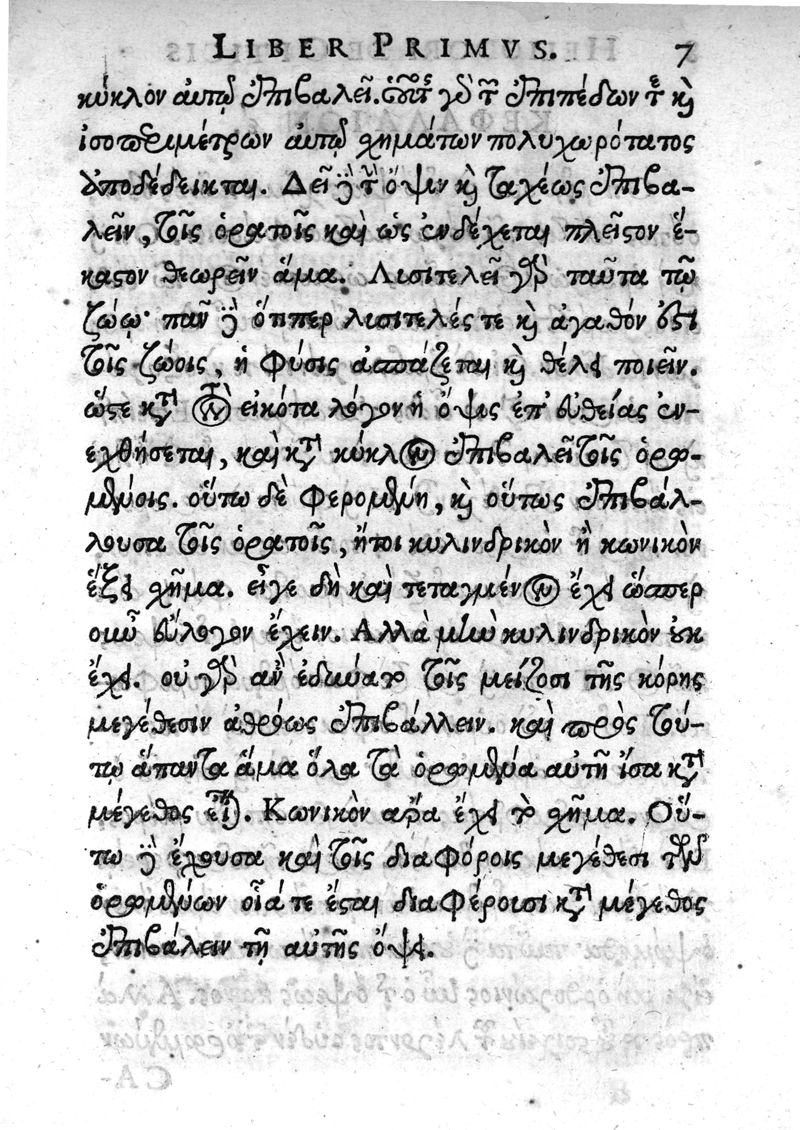 LIBER PRIMVS. 7
κύκλον αὐτῷ ἐπιβαλεῖ. οὗτος γὰρ τῶν ἐπιπέδων τε καὶ
ἰσοπεριμέτρων αὐτῷ σχημάτων πολυχωρότατος
ὑποδέδεικται. Δεῖ δὲ τὴν ὄψιν καὶ ταχέως ἐπιβα-
λεῖν, τοῖς ὁρατοῖς καὶ ὡς ἐνδέχεται πλεῖστον ἕ-
καστον θεωρεῖν ἅμα. Λισιτελεῖ γὰρ ταῦτα τῷ
ζώῳ· πᾶν δὲ ὅπιπερ λισιτελές τε καὶ ἀγαθόν ἐστι
τοῖς ζώοις, ἡ φύσις ἀσπάζεται καὶ θέλει ποιεῖν.
ὥστε κατὰ τὸν εἰκότα λόγον ἡ ὄψις ἐπ' εὐθείας ἐν-
εχθήσεται, καὶ κατὰ κύκλον ἐπιβαλεῖ τοῖς ὁρω-
μένοις. οὕτω δὲ φερομένη, καὶ οὕτως ἐπιβάλ-
λουσα τοῖς ὁρατοῖς, ἤτοι κυλινδρικὸν ἢ κωνικὸν
ἕξει σχῆμα. εἶγε δὴ καὶ τεταγμένον ἔχει ὥσπερ
οὖν εὔλογον ἔχειν. Αλλὰ μὴν κυλινδρικὸν οὐκ
ἔχει. οὐ γὰρ ἂν ἐδύνατο τοῖς μείζοσι τῆς κόρης
μεγέθεσιν ἀθρόως ἐπιβάλλειν. καὶ πρὸς τού-
τῳ ἅπαντα ἅμα ὅλα τὰ ὁρώμενα αὐτῇ ἴσα κατὰ
μέγεθος εἶναι. Κωνικὸν ἄρα ἔχει τὸ σχῆμα. Οὕ-
τω δὲ ἔχουσα καὶ τοῖς διαφόροις μεγέθεσι τῶν
ὁρωμένων οἵα τε ἔσται διαφέροισι κατὰ μέγεθος
ἐπιβάλειν τῇ αὐτῆς ὄψει.